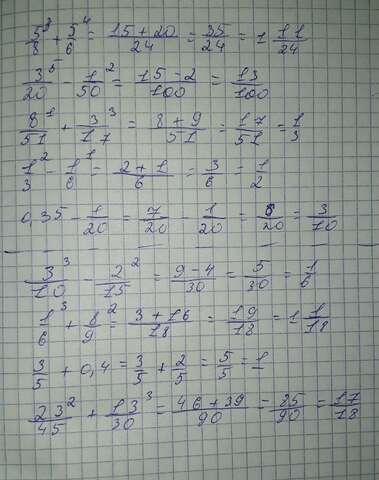 5/8³ + 5/6⁴ = (15+20)/24 = 35/24 = 1 11/24
3/20⁵ - 1/50² = (15-2)/100 = 13/100
8/51¹ + 3/17³ = (8+9)/51 = 17/51 = 1/3
1/3² - 1/6¹ = (2+1)/6 = 3/6 = 1/2
0,35 - 1/20 = 7/20 - 1/20 = 6/20 = 3/10
3/10³ - 2/15² = (9-4)/30 = 5/30 = 1/6
1/6³ + 8/9² = (3+16)/18 = 19/18 = 1 1/18
3/5 + 0,4 = 3/5 + 2/5 = 5/5 = 1
23/45² + 13/30³ = (46+39)/90 = 85/90 = 17/18